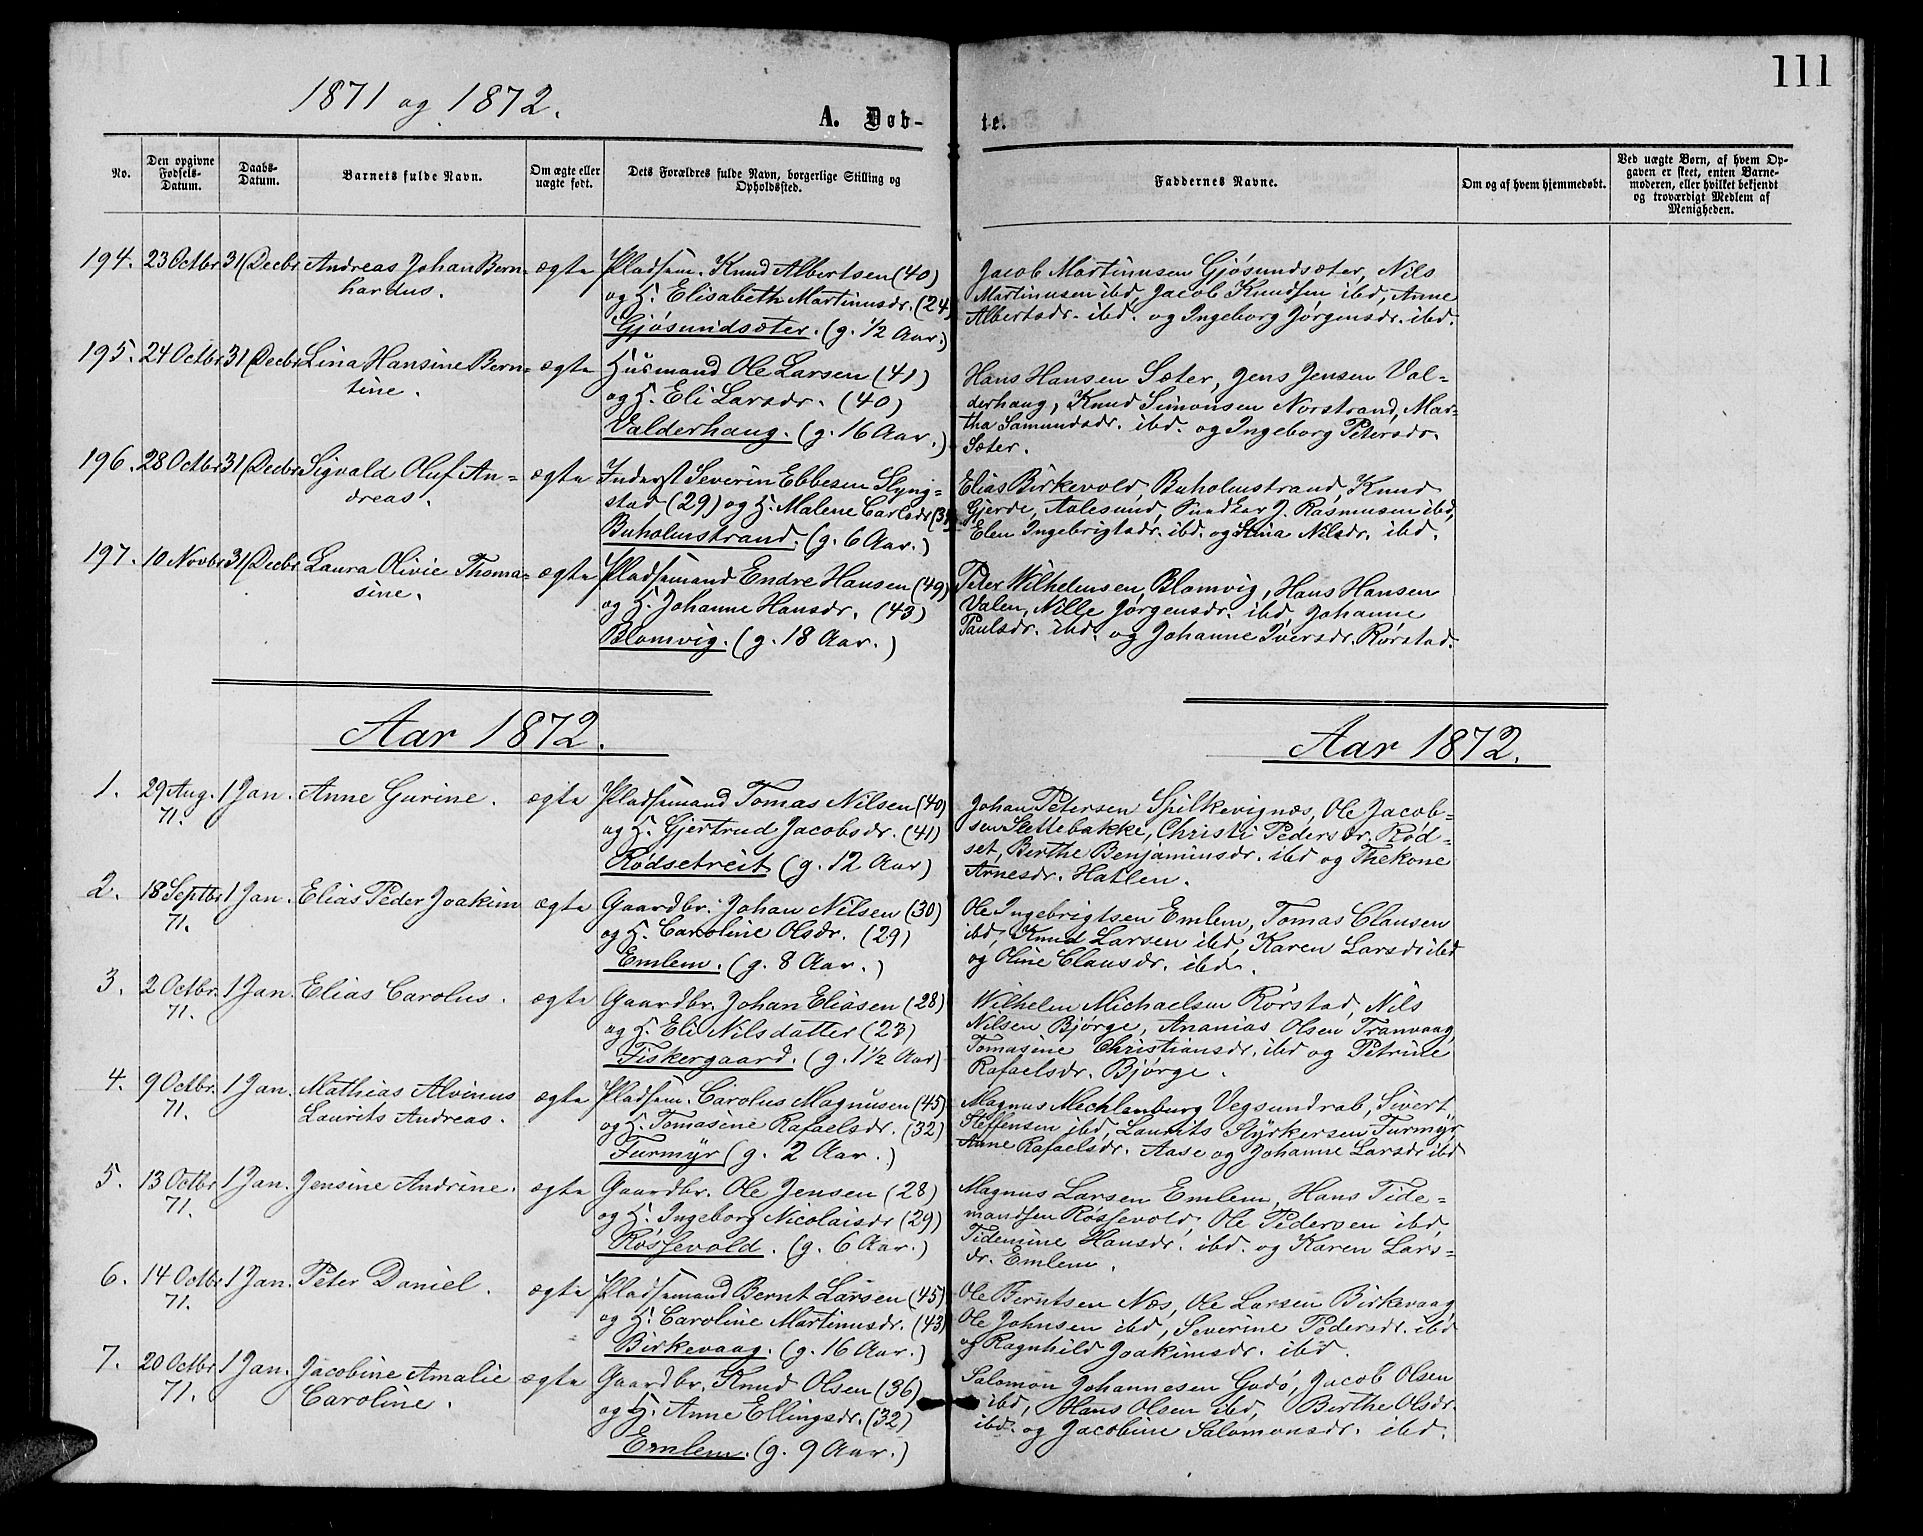 111
1871 og 1872.
A. Døb-
te.
No.
Den opgivne
Fødsels-
Datum.
Daabs-
Datum.
Barnets fulde Navn.
Om ægte eller
uægte født.
Dets Forældres fulde Navn, borgerlige Stilling og
Opholdssted.
Faddernes Navne.
Om og af hvem hjemmedøbt.
Ved uægte Børn, af hvem Op-
gaven er skeet, enten Barne-
moderen, eller hvilket bekjendt
og troværdigt Medlem af
Menigheden.
194. 23 Octbr 31 Decbr Andreas Johan Bern- ægte Pladsem. Knud Albertsen (40)
hardus. og H. Elisabeth Martinusdr. (24)
Gjøsundsæter. (g. 1/2 Aar.)
Jacob Martinusen Gjøsundsæter, Nils
Martinusen ibd, Jacob Knudsen ibd, Anne
Albertsdr. ibd. og Ingeborg Jørgensdr. ibd.
195. 24 Octbr 31 Decbr Lina Hansine Bern= ægte Husmand Ole Larsen (41)
tine. og H. Eli Larsdr. (40)
Valderhaug. (g. 16 Aar.)
Hans Hansen Sæter, Jens Jensen Val=
derhaug, Knud Simonsen Norstrand, Mar=
tha Samundsdr. ibd. og Ingeborg Petersdr.
Sæter.
196. 28 Octbr 31 Decbr Sigvald Oluf An= ægte Inderst Severin Ebbesen Slyng=
dreas. stad (29) og H. Malene Carlsdr
Buholmstrand. (g. 6 Aar.)
Elias Birkevold, Buholmstrand, Knud
Gjerde, Aalesund, Snedker J. Rasmusen ibd,
Elen Ingebrigtsdr. ibd. og Stina Nilsdr. ibd.
197. 10 Novbr 31 Decbr Laura Olivie Thoma= ægte Pladsemand Endre Hansen (49)
sine. og H. Johanne Hansdr. (43)
Blomvig. (g. 18 Aar.)
Peter Wilhelmsen, Blomvig, Hans Hansen
Valen, Nille Jørgensdr. ibd, Johanne
Paulsdr. ibd. og Johanne Iversdr. Rørstad.
Aar 1872.
Aar 1872.
1. 29 Aug. 1 Jan. Anne Gurine. ægte Pladsemand Tomas Nilsen (40)
71. og H. Gjertrud Jacobsdr. (41)
Rødsetreit (g. 12 Aar)
Johan Petersen Spilkevignæs, Ole Jacob=
sen Slettebakke, Christi Pedersdr. Rød=
set, Berthe Benjaminsdr. ibd og Thekone
Arnesdr. Hatlen.
2. 18 Septbr 1 Jan. Elias Peder Joakim ægte Gaardbr. Johan Nilsen (30)
71. og H. Caroline Olsdr. (29)
Emlem. (g. 8 Aar.)
Ole Ingebrigtsen Emlem, Tomas Clausen
ibd, Knud Larsen ibd, Karen Larsdr ibd
og Oline Clausdr. ibd.
3. 2 Octbr. 1 Jan. Elias Carolus. ægte Gaardbr. Johan Eliasen (28)
71. og H. Eli Nilsdatter (23)
Fiskergaard. (g. 1 1/2 Aar)
Wilhelm Michaelsen Rørstad, Nils
Nilsen Bjørge, Ananias Olsen Tranvaag,
Tomasine Christiansdr. ibd og Petrine
Rafaelsdr. Bjørge.
4. 9 Octbr. 1 Jan. Mathias Alvinus ægte Pladsem. Carolus Magnusen (45)
71. Laurits Andreas. og H. Tomasine Rafaelsdr. (32)
Furmyr (g. 2 Aar.)
Magnus Mechlenburg Vegsundrab, Sivert
Steffensen ibd, Laurits Styrkersen Furmyr,
Anne Rafaelsdr. Aase og Johanne Larsdr ibd
5. 13 Octbr 1 Jan. Jensine Andrine. ægte Gaardbr. Ole Jensen (28)
71. og H. Ingeborg Nicolaisdr (29)
Røssevold. (g. 6 Aar.)
Magnus Larsen Emlem, Hans Tide=
mandsen Røssevold, Ole Pedersen ibd,
Tidemine Hansdr. ibd. og Karen Lars=
dr. Emlem.
6. 14 Octbr 1 Jan. Peter Daniel. ægte Pladsemand Bernt Larsen (45)
71. og H. Caroline Martinusdr. (43)
Birkevaag. (g. 16 Aar.)
Ole Berntsen Næs, Ole Larsen Birkevaag,
Ole Johnsen ibd, Severine Pedersdr. ibd
og Ragnhild Joakimsdr. ibd.
7. 20 Octbr 1 Jan. Jacobine Amalie ægte Gaardbr. Knud Olsen (36)
71. Caroline. og H. Anne Ellingsdr. (32)
Emlem. (g. 9 Aar.)
Salomon Johannesen Godø, Jacob Olsen
ibd, Hans Olsen ibd, Berthe Olsdr.
ibd. og Jacobine Salomonsdr. ibd.